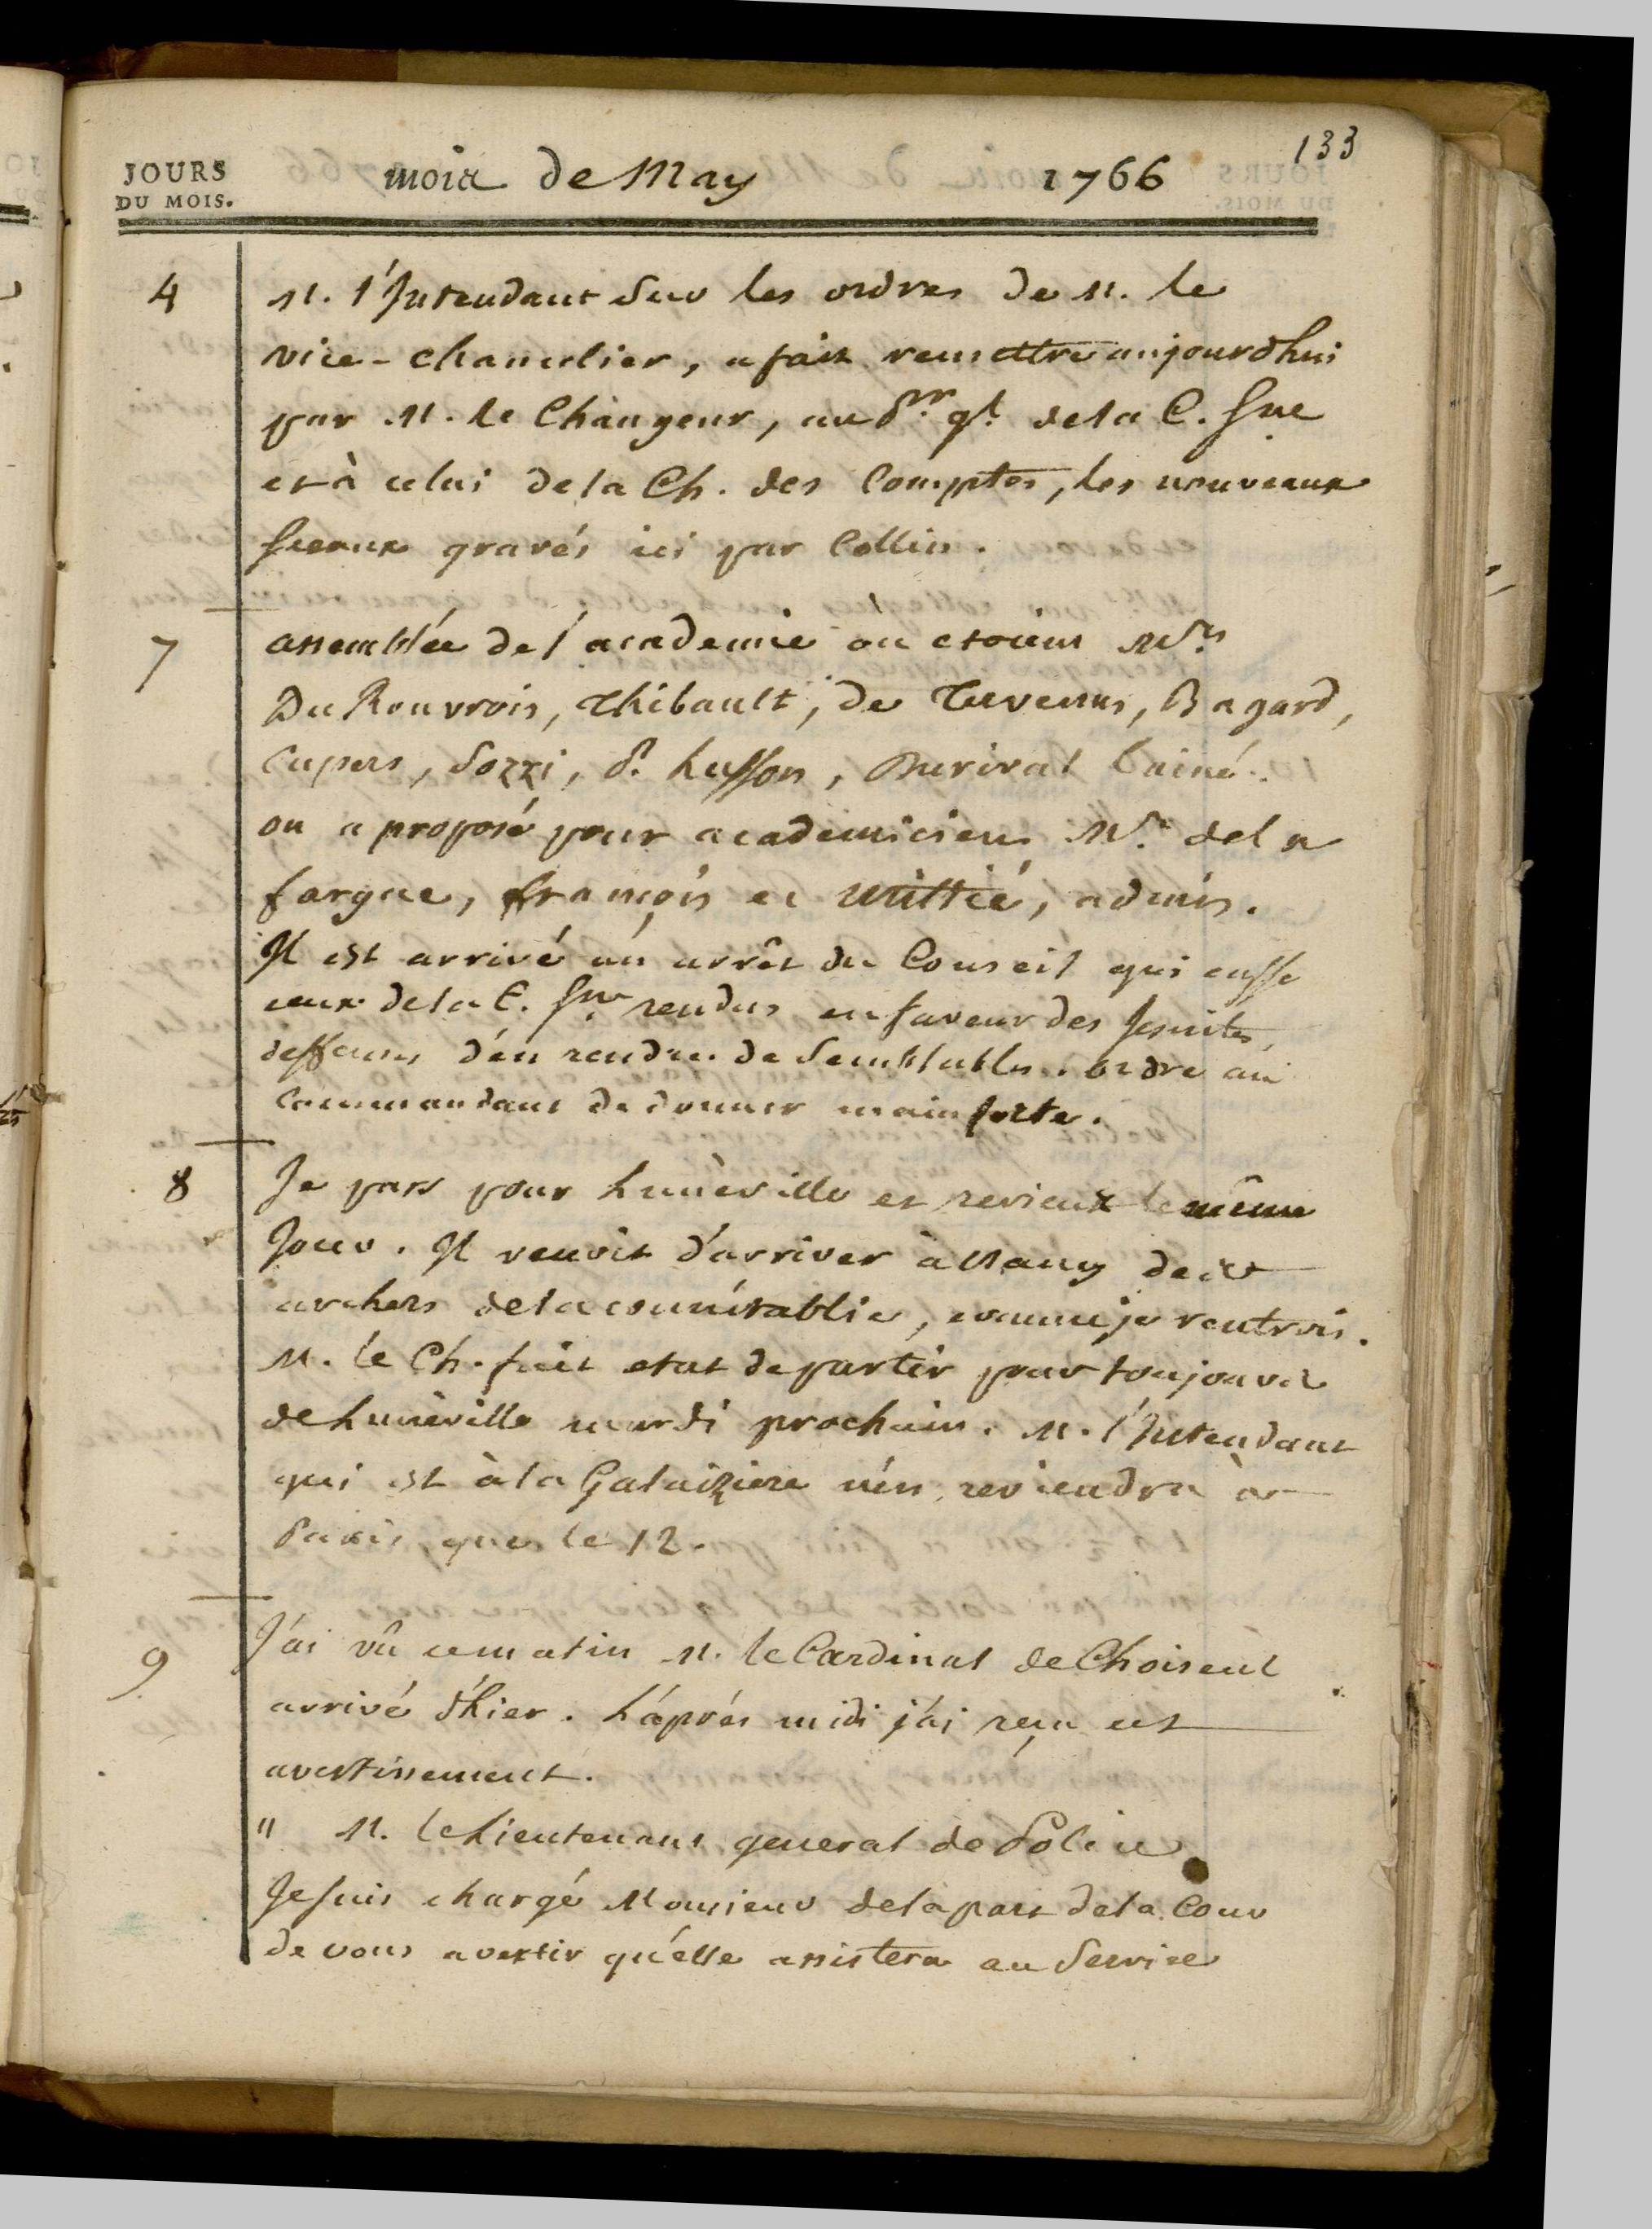 133
JOURS
DU MOIS.
mois de May 1766
4 M. l'Intendant sur les ordres de M. le
vice-chancelier, a fait remettre aujourdhui
par M. le Changeur, au Pr. gl. de la C. Sne
et à celui de la Ch. des Comptes, les nouveaux
sceaux gravés ici par Collin.
7 assemblée de l'academie ou etoient Mrs
Du Rouvrois, Thibault, de Tervenus, Bagard,
Cupers, Sozzi, P. Husson, Durival l'ainé.
on a proposé pour academiciens Mrs. de la
fargue, françois et Willié, admis.
Il est arrivé un arrêt du Conseil qui casse
ceux de la C. Sne rendus en faveur des Jesuites,
deffenses d'en rendre de semblables. ordre au
Commandant de donner main forte.
8 Je pars pour Lunéville et reviens le même
Jour. Il venoit d'arriver à Nancy deux
archers de la connétablie, comme je rentrois.
M. le Ch. fait etat de partir pour toujours
de Lunéville mardi prochain. M. l'Intendant
qui est à la Galaiziere n'en reviendra à
Paris que le 12.
9 J'ai vû ce matin M. le Cardinal de Choiseul
arrivé d'hier. L'après midi j'ai reçu cet
avertissement.
" M. le Lieutenant general de Police
Je suis chargé Monsieur de la part de la Cour
de vous avertir qu'elle assistera au Service